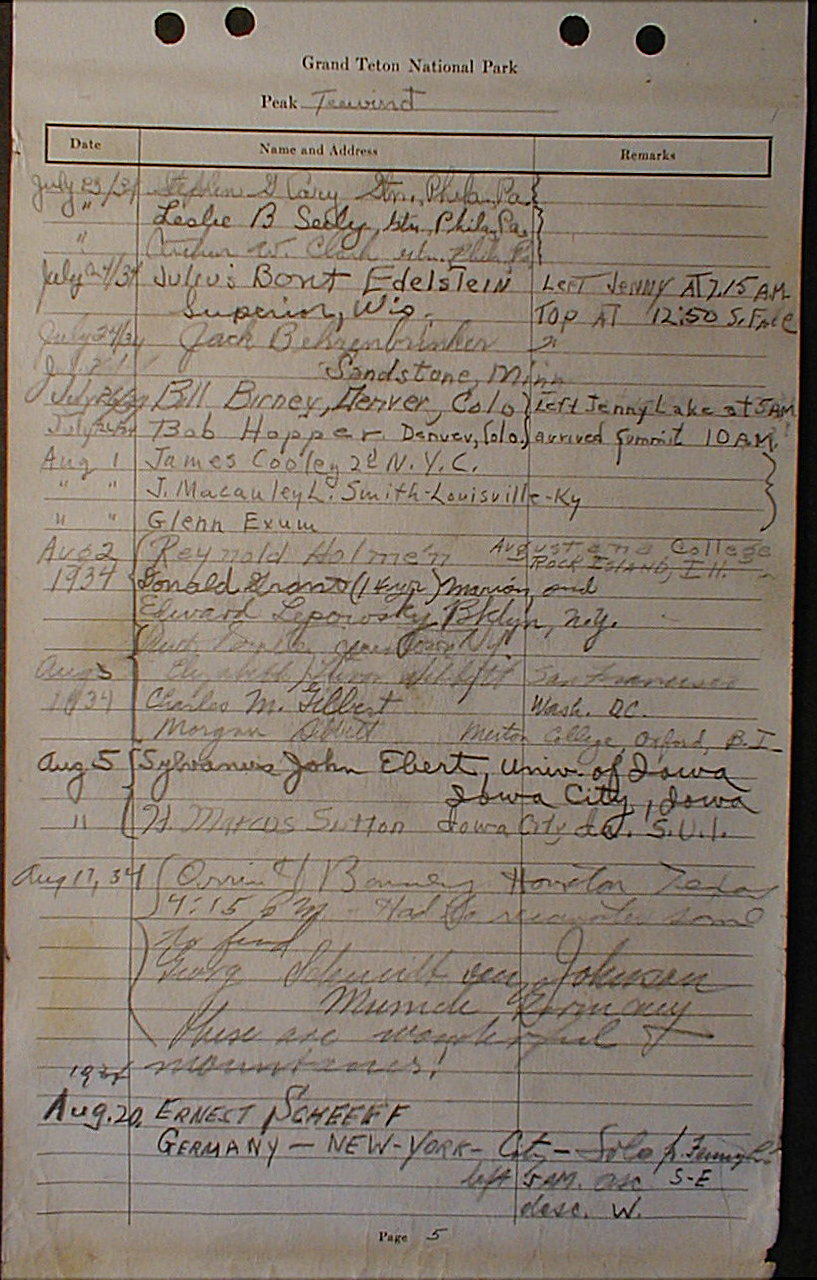 Grand Teton National Park
Peak Teewinot
Date Name and Address Remarks
July 23/34 Stephen G Cary Gtn., Phila. Pa.
" Leslie B Seely, Gtn. Phila, Pa.
" W. Clark Gtn. Phila Pa
July 24/34 Julius Bont Edelstein Left Jenny At 7.15 AM
Superior, Wis. Top At 12:50 S. Face
July 24/34 Jack Behrenbrinker "
Sandstone, Minn
July 26/34 Bill Birney, Denver, Colo Left Jenny Lake at 5AM
July 26/34 Bob Hopper Denver, Colo. arrived Summit 10 A.M.
Aug 1 James Cooley 2d N.Y.C.
" " J. Macauley L. Smith-Louisville-Ky
" " Glenn Exum
Aug 2 Reynold Holmen Augustana College
1934 Rock Island, Ill.
Donald Grant (14 yr) Marion, and
Edward Lepowsky Bklyn, N.Y.
Aug 3 Elizabeth San Francisco
1934 Charles M. Gilbert Wash. DC.
Morgan Merton College, Oxford, B.I.
Aug 5 Sylvanus John Ebert, Univ. of Iowa
Iowa City, Iowa
" H Marcus Sutton Iowa City Ia. S.U.I.
Aug 17, 34 Orrin H Bonney Houston Texas
4:15 PM - Had to some
to find
Georg Schmidt von Johnson
Munich Germany
these are wonderful
mountains!
1934
Aug. 20, Ernest Scheeff
Germany - New-York- City - Solo
left 5 AM. asc S-E
desc. W.
Page 5